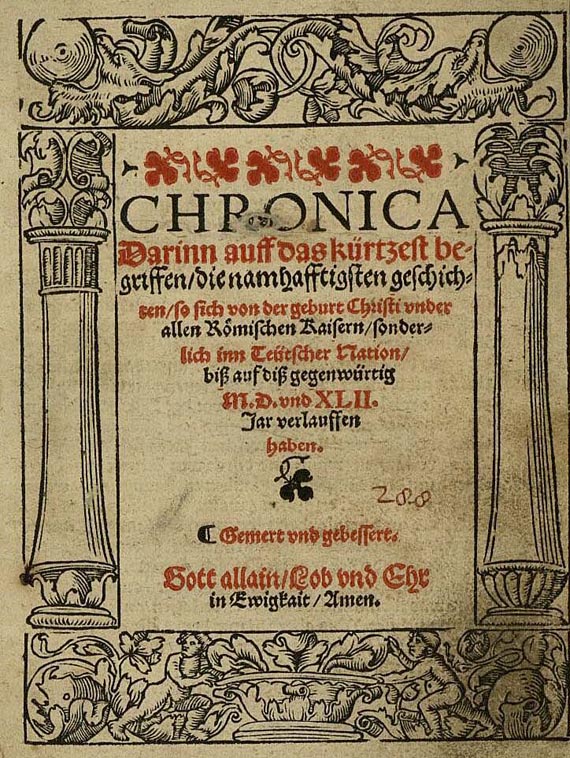 CHRONICA
Darinn auff das kürtzest be-
griffen/die namhafftigsten geschich-
ten/so sich von der geburt Christi vnder
allen Römischen Kaisern/sonder-
lich inn Teütscher Nation/
biß auf diß gegenwürtig
M.D.vnd XLII.
Jar verlauffen
haben.
288
Gemert vnd gebessert.
Gott allain/Lob vnd Ehr
in Ewigkait/Amen.